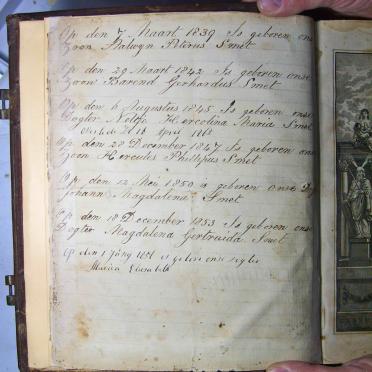 Op den 7 Maart 1839 Is geboren ons
Zoon Stalwyn Peterus Smet
Op den 29 Maart 1842 Is geboren onse
Zoon Barend Gerhardus Smet
Op den 6 Augustus 1845 Is geboren onse
Dogter Neltje Hercolina Maria Smet
April
Op den 28 December 1847 Is geboren ons
Zoon Hercules Phillipus Smet
Op den 12 Mei 1850 is geboren onse Dog
Johann Magdalena Smet
Op den 18 December 1853 Is geboren onse
Dogter Magdalena Gertruida Smet
Op den 1 is gebore onse
Maria Elisabeth